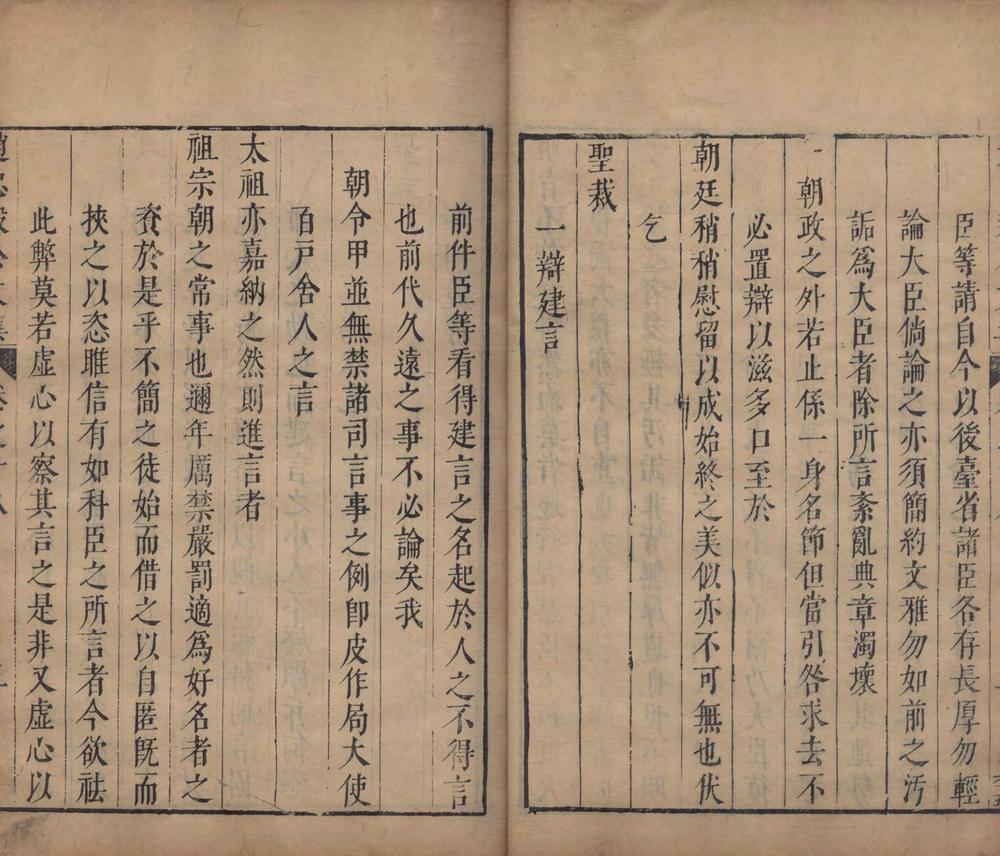 臣等請自今以後臺省諸臣各存長厚勿輕
論大臣倘論之亦須簡約文雅勿如前之汚
詬爲大臣者除所言紊亂典章濁壞
朝政之外若止係一身名節但當引咎求去不
必置辯以滋多口至於
朝廷稍稍慰留以成始終之美似亦不可無也伏
乞
聖裁
一辯建言
前件臣等看得建言之名起於人之不得言
也前代久遠之事不必論矣我
朝令甲並無禁諸司言事之例卽皮作局大使
百戸舍人之言
太祖亦嘉納之然則進言者
祖宗朝之常事也邇年厲禁嚴罰適爲好名者之
資於是乎不簡之徒始而借之以自匿旣而
挾之以恣睢信有如科臣之所言者今欲祛
此弊莫若虛心以察其言之是非又虛心以